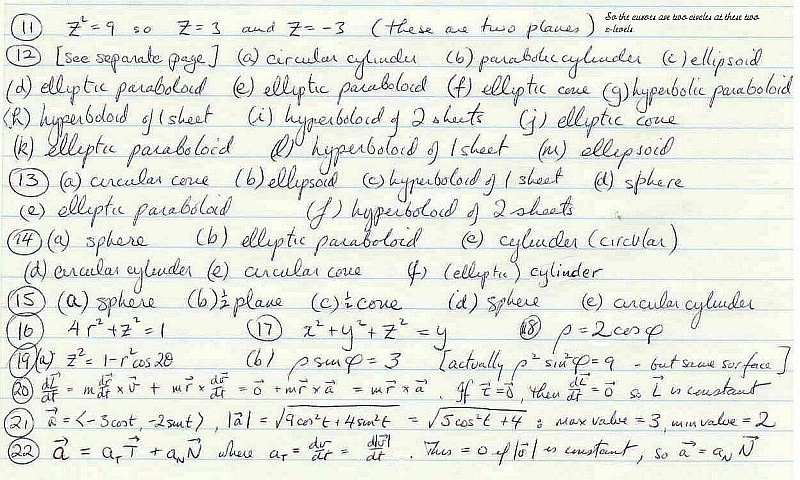 (11) z² = 9 so z = 3 and z = -3 (these are two planes) So the curves are two circles at these two z-levels
(12) [see separate page] (a) circular cylinder (b) parabolic cylinder (c) ellipsoid
(d) elliptic paraboloid (e) elliptic paraboloid (f) elliptic cone (g) hyperbolic paraboloid
(h) hyperboloid of 1 sheet (i) hyperboloid of 2 sheets (j) elliptic cone
(k) elliptic paraboloid (l) hyperboloid of 1 sheet (m) ellipsoid
(13) (a) circular cone (b) ellipsoid (c) hyperboloid of 1 sheet (d) sphere
(e) elliptic paraboloid (f) hyperboloid of 2 sheets
(14) (a) sphere (b) elliptic paraboloid (c) cylinder (circular)
(d) circular cylinder (e) circular cone (f) (elliptic) cylinder
(15) (a) sphere (b) ½ plane (c) ½ cone (d) sphere (e) circular cylinder
(16) 4r² + z² = 1 (17) x² + y² + z² = y (18) ρ = 2cosφ
(19) (a) z² = 1 - r²cos2θ (b) ρ sinφ = 3 [actually ρ² sin²φ = 9 - but same surface]
(20) dL⃗/dt = m dr⃗/dt × v⃗ + m r⃗ × dv⃗/dt = 0⃗ + m r⃗ × a⃗ = m r⃗ × a⃗. If τ⃗ = 0⃗, then dL⃗/dt = 0⃗ so L⃗ is constant
(21) a⃗ = ⟨-3cost, -2sint⟩, |a⃗| = √(9cos²t + 4sin²t) = √(5cos²t + 4); max value = 3, min value = 2
(22) a⃗ = a_T T⃗ + a_N N⃗ where a_T = dv/dt = d|v⃗|/dt. This = 0 if |v⃗| is constant, so a⃗ = a_N N⃗